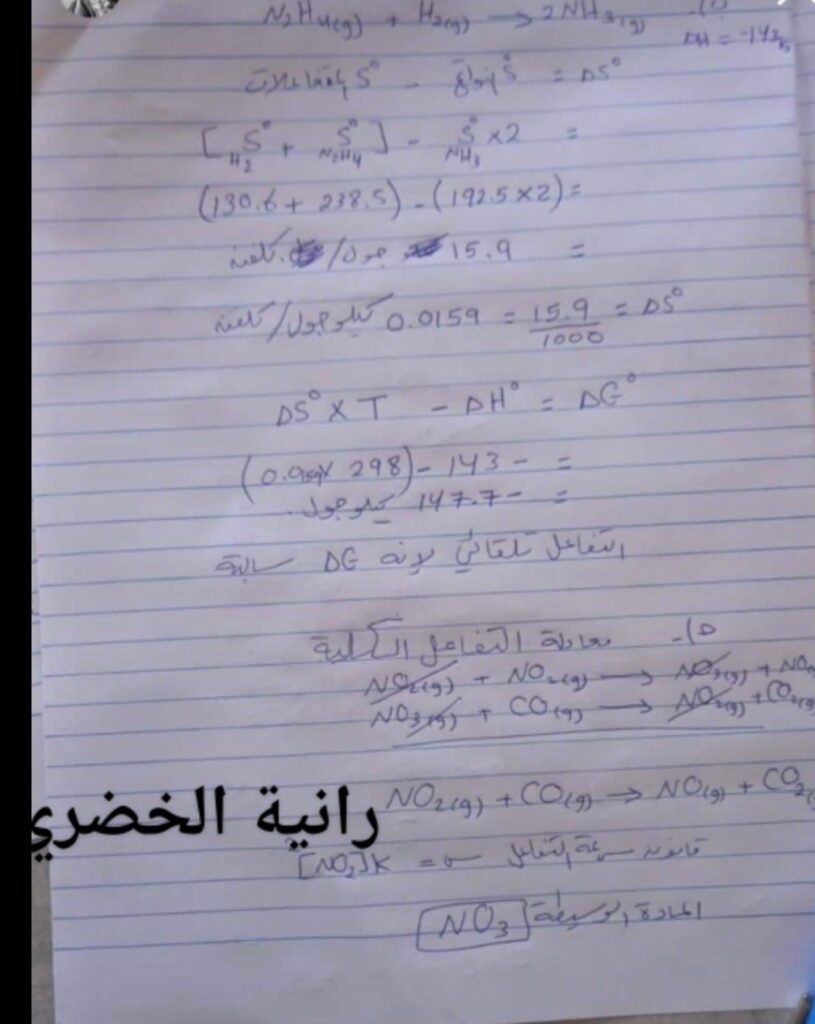 N₂H₄(g) + H₂(g) → 2NH₃(g)
ΔH = -143
ΔS° = S° نواتج - S° متفاعلات
= 2 × S° NH₃ - [S° N₂H₄ + S° H₂]
=(2×192.5) - (238.5 + 130.6)
= 15.9 جول/كلفن
ΔS° = 15.9/1000 = 0.0159 كيلوجول/كلفن
ΔG° = ΔH° - T × ΔS°
= -143 - (298 ×
= -147.7 كيلوجول.
التفاعل تلقائي لإنه ΔG سالبة
معادلة التفاعل الكلية
NO₂(g) + NO₂(g) → NO₃(g) + NO
NO₃(g) + CO(g) → NO₂(g) + CO₂(g)
NO₂(g) + CO(g) → NO(g) + CO₂(
رانية الخضري
قانون سرعة التفاعل س = K[NO₂]
المادة الوسيطة NO₃